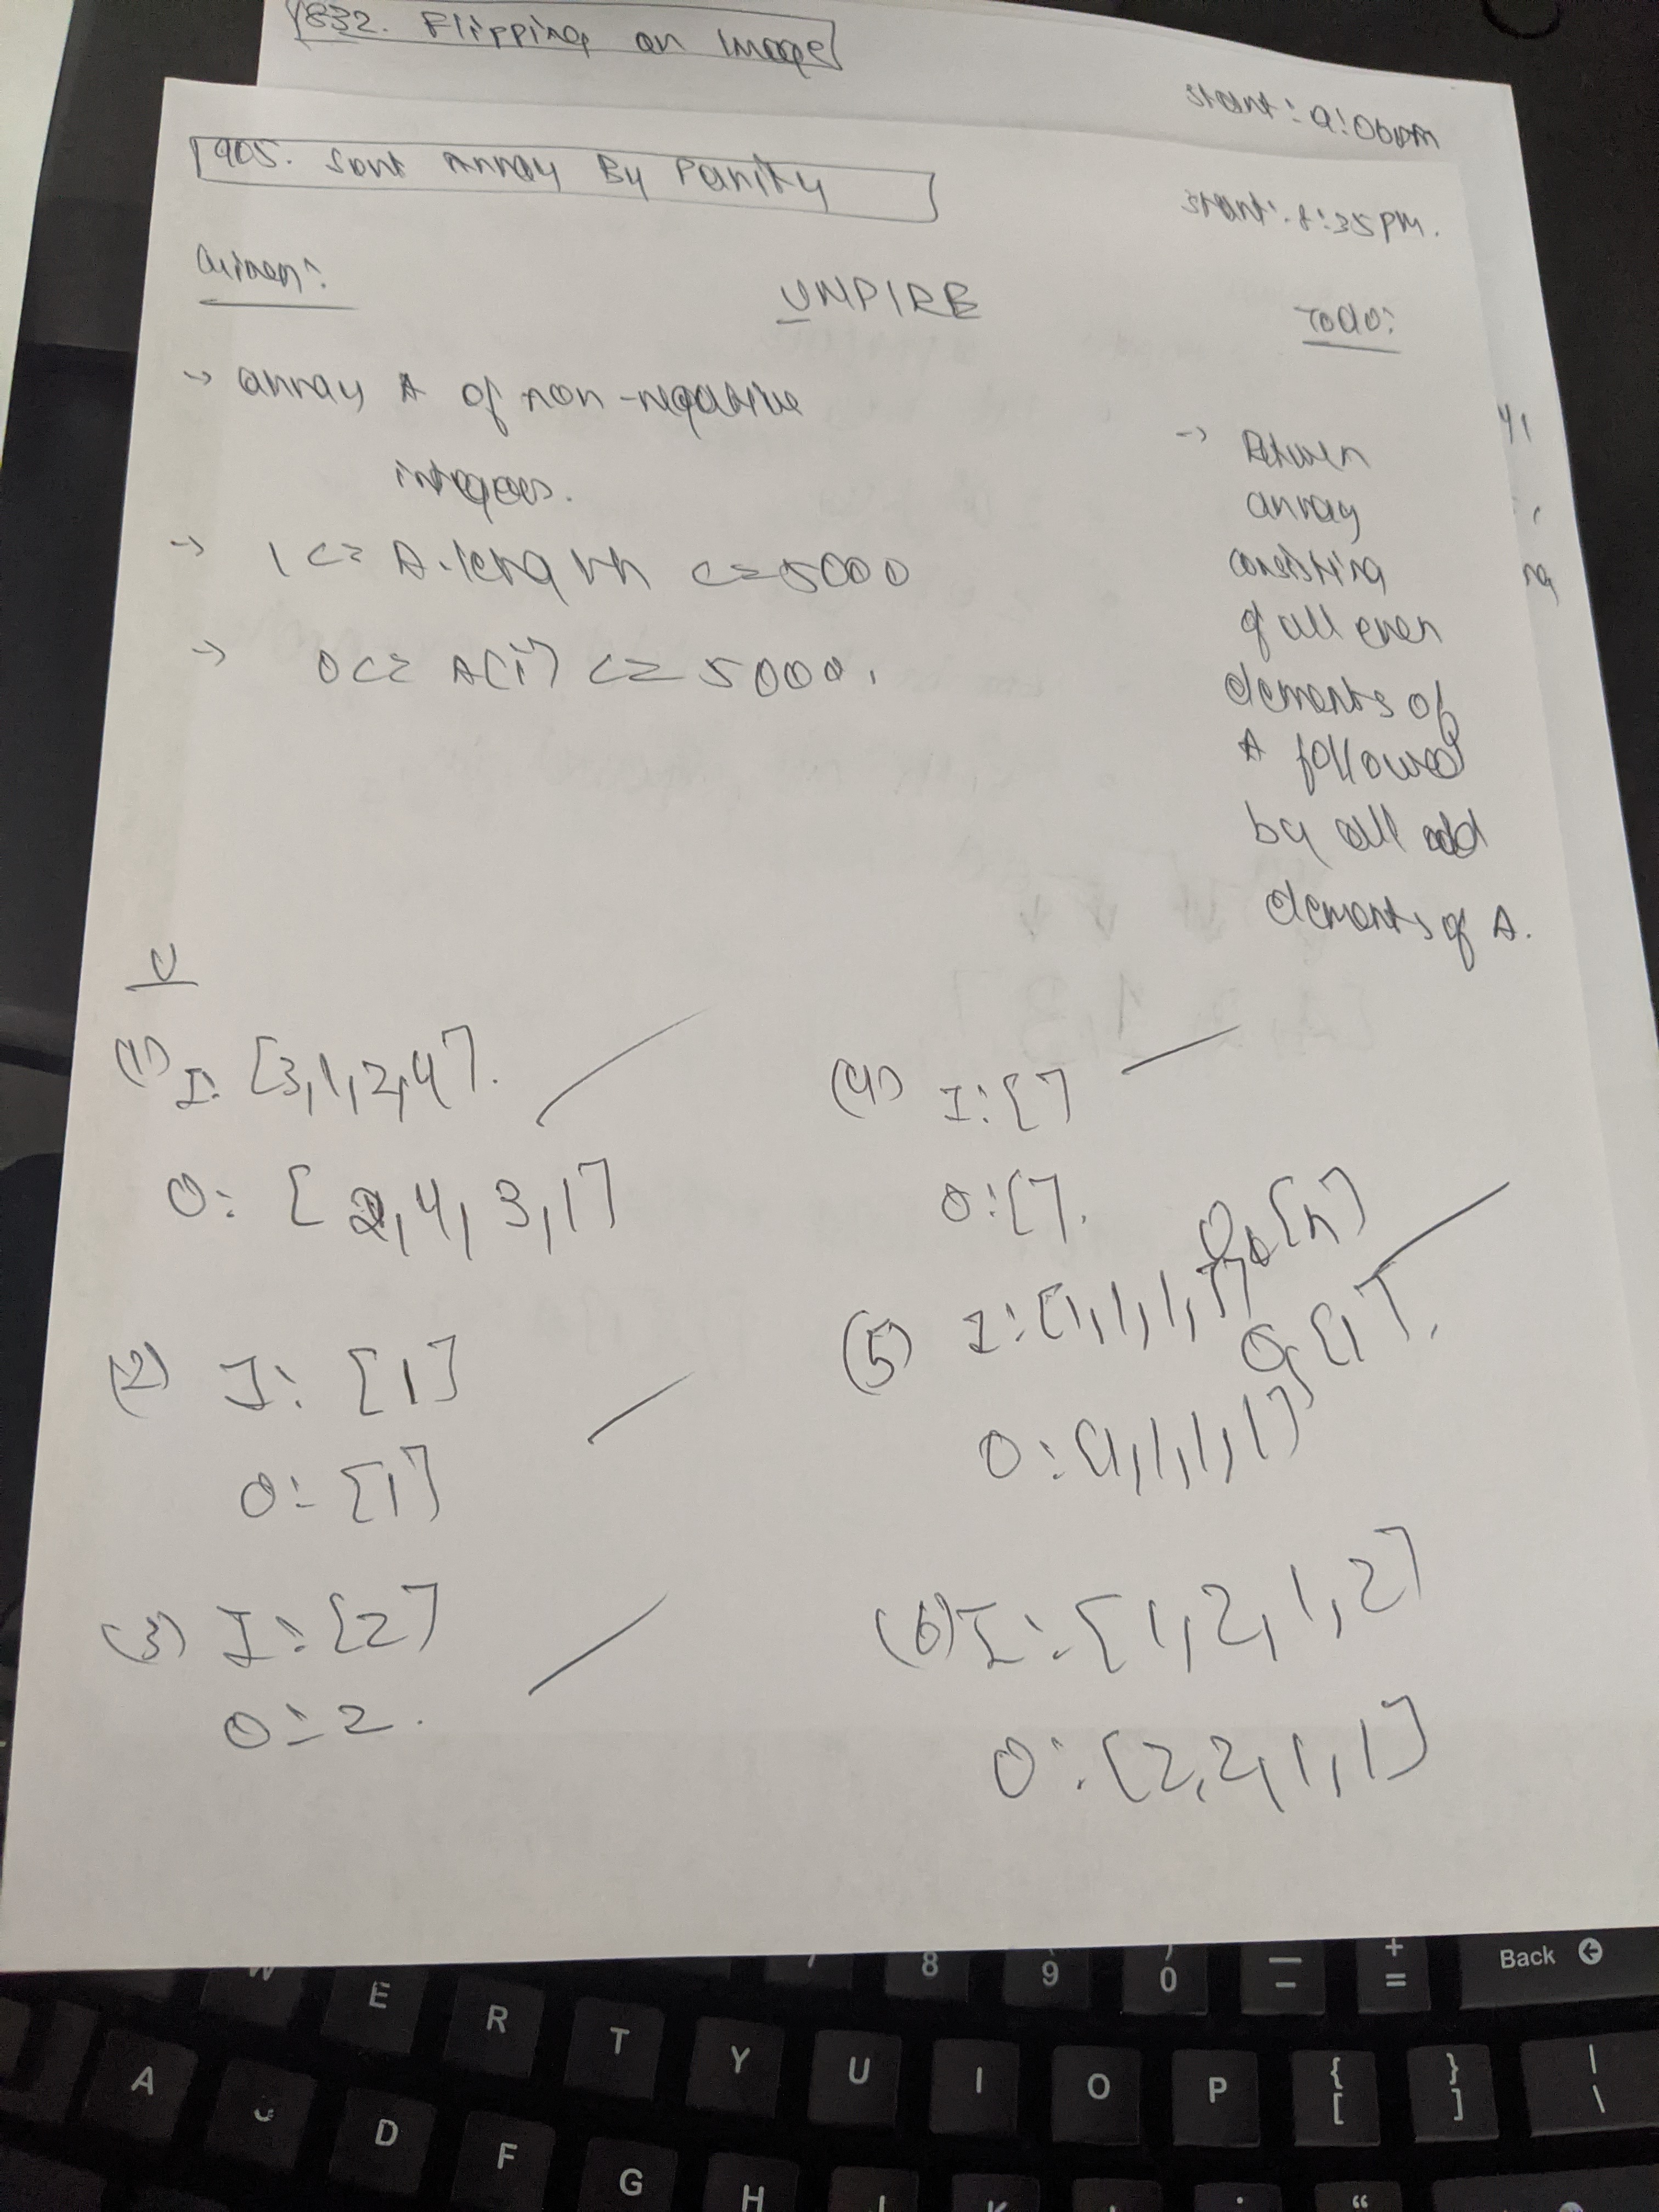 832. Flipping an Image
Start: 9:06pm
905. Sort Array By Parity
Start: 8:35PM.
Given:
UMPIRE
Todo:
-> array A of non-negative
integers.
-> 1 <= A.length <= 5000
-> 0 <= A[i] <= 5000.
-> Return
array
consisting
of all even
elements of
A followed
by all odd
elements of A.
U
(1) I: [3,1,2,4].
O: [2,4,3,1]
(2) I: [1]
O: [1]
(3) I: [2]
O: 2.
(4) I: []
O: [].
(5) I: [1,1,1,1]
O: [1,1,1,1]
(6) I: [1,2,1,2]
O: [2,2,1,1]
8
9
)
0
—
-
+
=
Back
E
R
T
Y
U
I
O
P
{
[
}
]
|
\
A
D
F
G
H